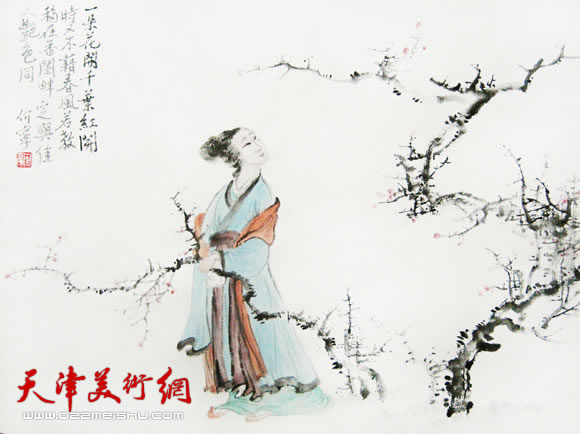 一朵花開千葉紅開
時又不藉春風若教
移在香閨畔定與佳
人艷色同
天津美術網
www.022meishu.com